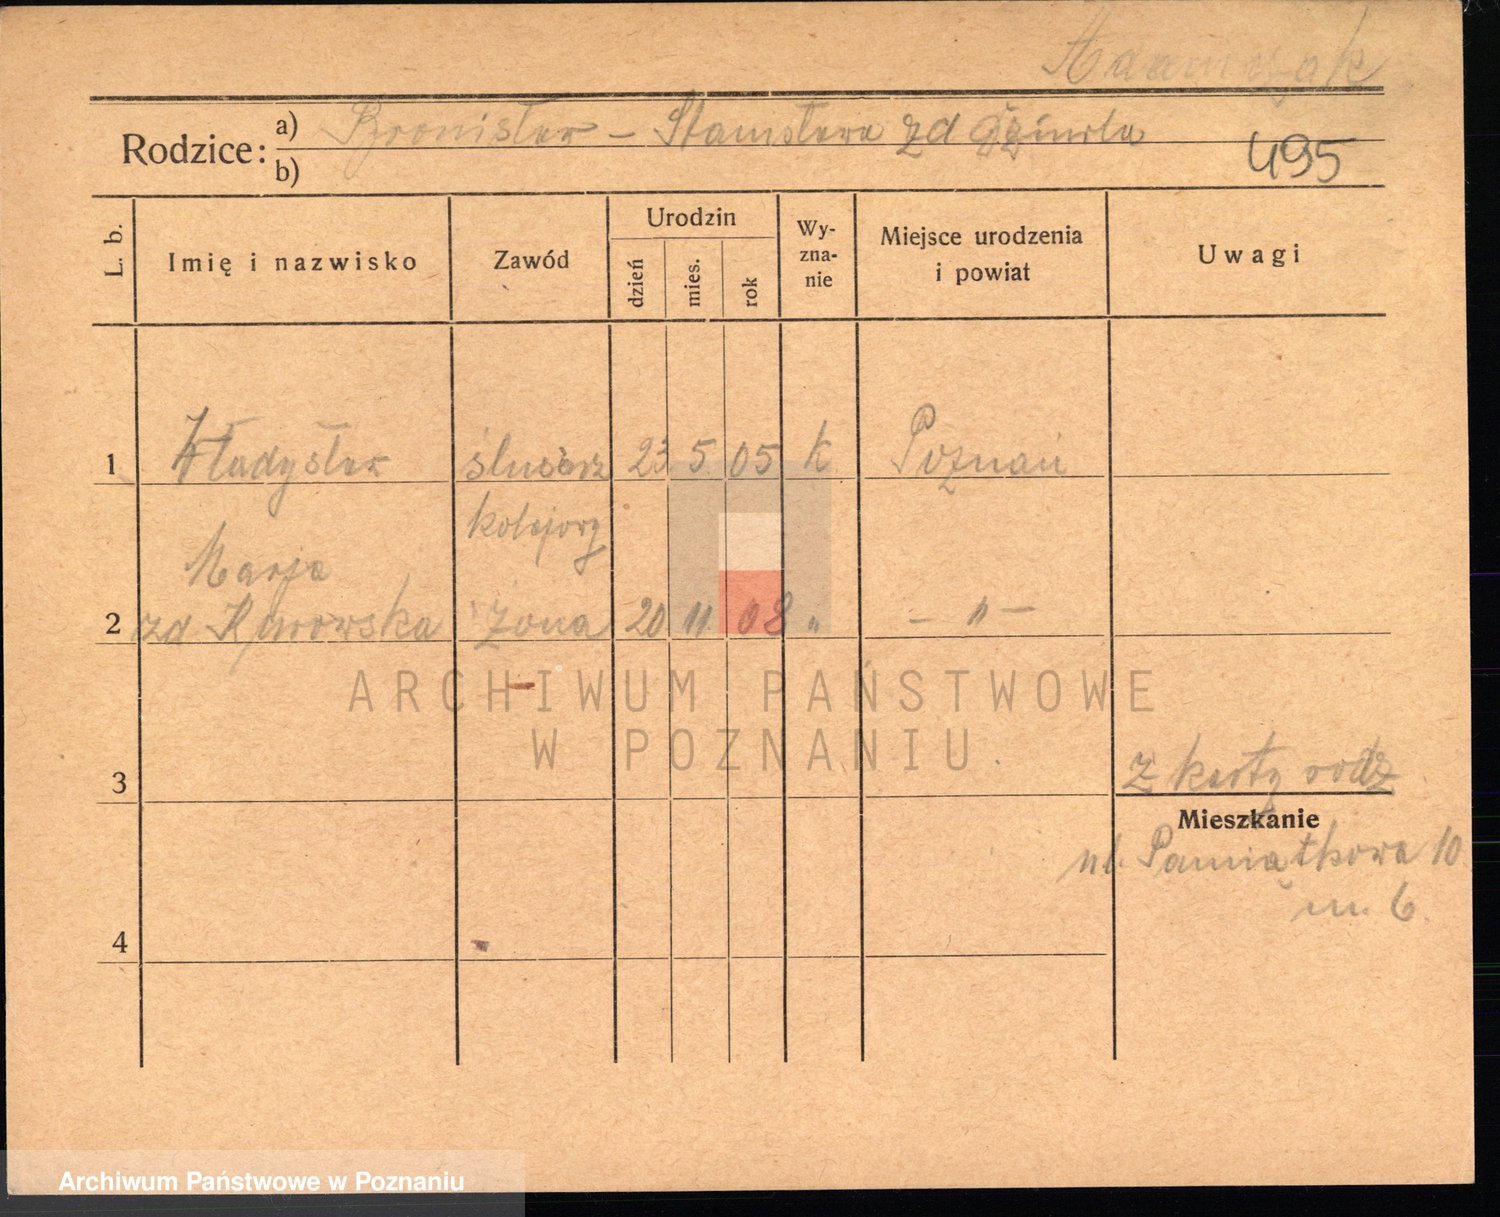 Adamczak
Rodzice: a) Bronisław – Stanisława zd
b)
495
L. b.
Imię i nazwisko
Zawód
Urodzin
dzień
mies.
rok
Wy-
zna-
nie
Miejsce urodzenia
i powiat
Uwagi
1 Władysław ślusarz 23 5 05 k Poznań
kolejowy
Marja
2 zd żona 20 11 08 " – " –
ARCHIWUM PAŃSTWOWE
W POZNANIU
3
z karty rodz
Mieszkanie
ul. Pamiątkowa 10
m. 6.
4
Archiwum Państwowe w Poznaniu